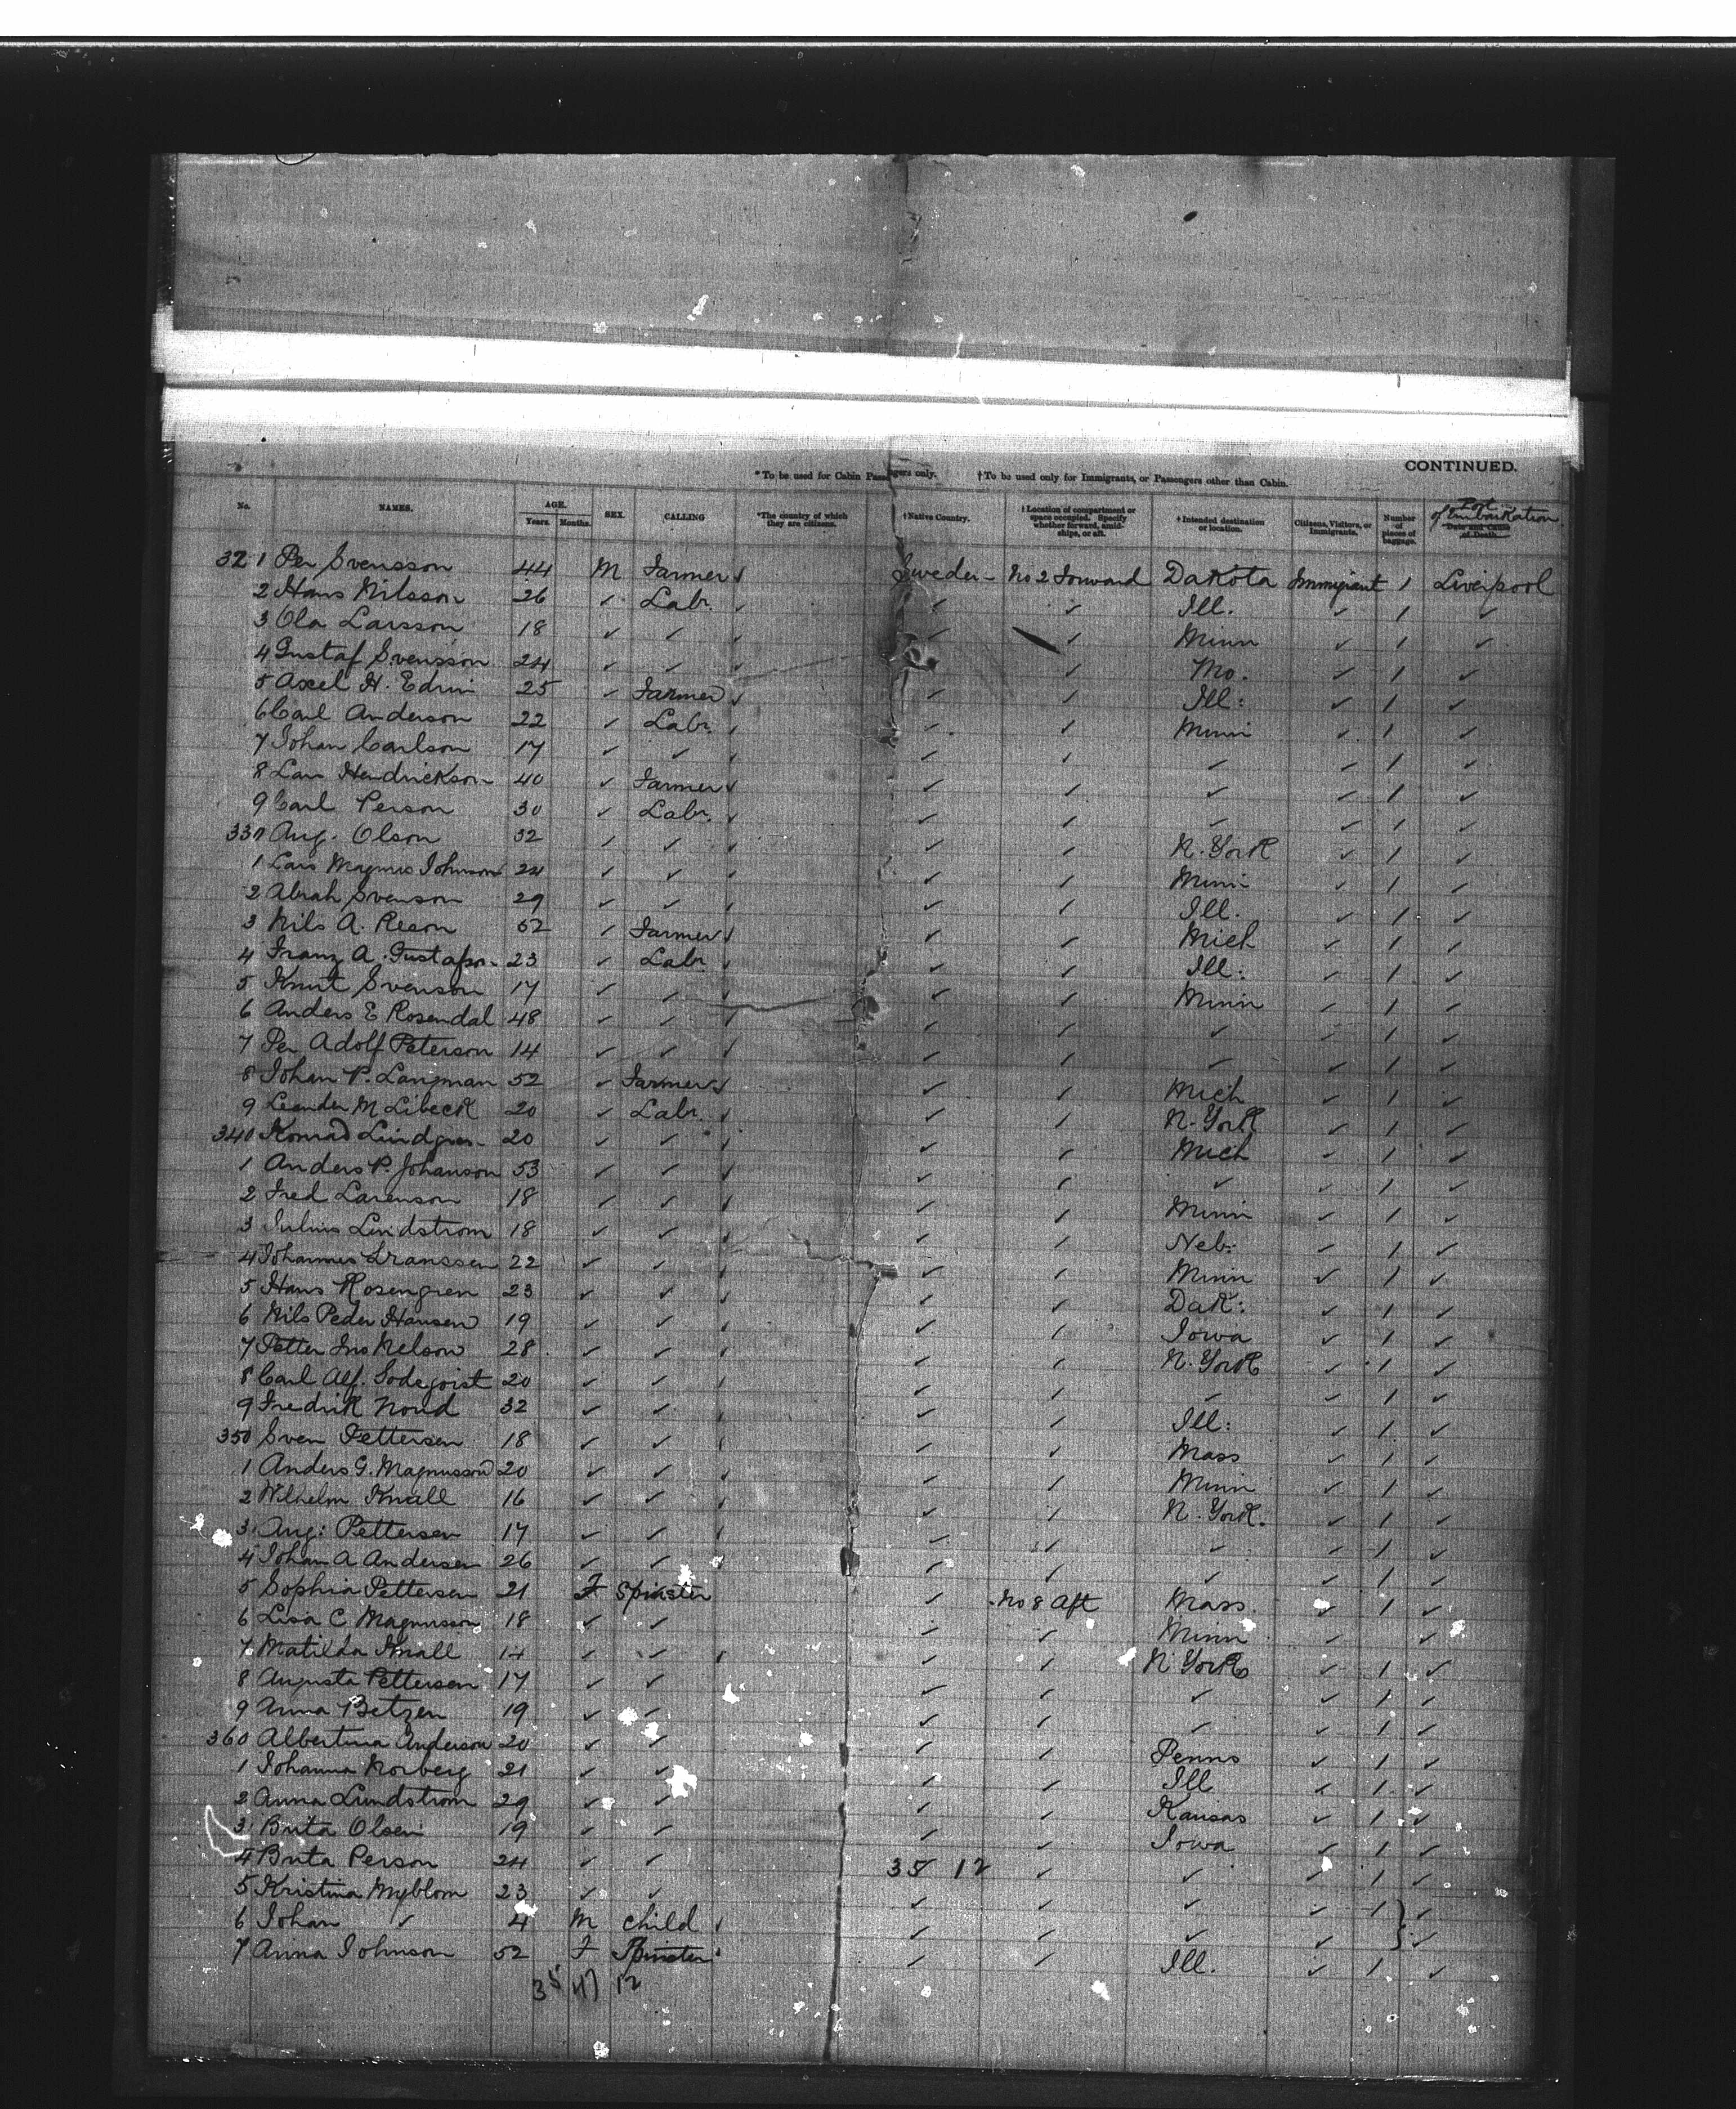 CONTINUED.
*To be used for Cabin Passengers only. †To be used only for Immigrants, or Passengers other than Cabin.
No. NAMES. AGE. Years. Months. SEX. CALLING *The country of which they are citizens. †Native Country. †Location of compartment or space occupied. Specify whether forward, amidships, or aft. †Intended destination or location. Citizens, Visitors, or Immigrants. Number of pieces of baggage. Port of Embarkation Date and Cause of Death.
321 Per Svensson 44 M Farmer ✓ Sweden No 2 Forward Dakota Immigrant 1 Liverpool
2 Hans Nilsson 26 ✓ Labr. ✓ ✓ ✓ Ill. ✓ 1 ✓
3 Ola Larsson 18 ✓ ✓ ✓ ✓ ✓ Minn ✓ 1 ✓
4 Gustaf Svensson 24 ✓ ✓ ✓ ✓ Mo. ✓ 1 ✓
5 Axel H. Edrin 25 ✓ Farmer ✓ ✓ ✓ Ill: ✓ 1 ✓
6 Carl Anderson 22 ✓ Labr. ✓ ✓ ✓ Minn ✓ 1 ✓
7 Johan Carlson 17 ✓ ✓ ✓ ✓ ✓ ✓ ✓ 1 ✓
8 Lars Hendrickson 40 ✓ Farmer ✓ ✓ ✓ ✓ ✓ 1 ✓
9 Carl Person 30 ✓ Labr. ✓ ✓ ✓ ✓ ✓ 1 ✓
330 Aug. Olson 32 ✓ ✓ ✓ ✓ ✓ N. York ✓ 1 ✓
1 Lars Magnus Johnson 24 ✓ ✓ ✓ ✓ ✓ Minn ✓ 1 ✓
2 Abrah Svenson 29 ✓ ✓ ✓ ✓ ✓ Ill. ✓ 1 ✓
3 Nils A. 52 ✓ Farmer ✓ ✓ ✓ Mich ✓ 1 ✓
4 Franz A. Gustafson 23 ✓ Labr ✓ ✓ ✓ Ill: ✓ 1 ✓
5 Knut Svenson 17 ✓ ✓ ✓ ✓ ✓ Minn ✓ 1 ✓
6 Anders E Rosendal 48 ✓ ✓ ✓ ✓ ✓ ✓ ✓ 1 ✓
7 Per Adolf Peterson 14 ✓ ✓ ✓ ✓ ✓ ✓ ✓ 1 ✓
8 Johan P. Langman 52 ✓ Farmer ✓ ✓ ✓ Mich ✓ 1 ✓
9 Leander M Libeck 20 ✓ Labr. ✓ ✓ ✓ N. York ✓ 1 ✓
340 Konrad Lindgren 20 ✓ ✓ ✓ ✓ ✓ Mich ✓ 1 ✓
1 Anders P. Johanson 53 ✓ ✓ ✓ ✓ ✓ ✓ ✓ 1 ✓
2 Fred Larenson 18 ✓ ✓ ✓ ✓ ✓ Minn ✓ 1 ✓
3 Julius Lindstrom 18 ✓ ✓ ✓ ✓ ✓ Neb: ✓ 1 ✓
4 Johannes Franssen 22 ✓ ✓ ✓ ✓ ✓ Minn ✓ 1 ✓
5 Hans Rosengren 23 ✓ ✓ ✓ ✓ ✓ Dak: ✓ 1 ✓
6 Nils Peder Hansen 19 ✓ ✓ ✓ ✓ ✓ Iowa ✓ 1 ✓
7 Petter Jns Nelson 28 ✓ ✓ ✓ ✓ ✓ N. York ✓ 1 ✓
8 Carl Alf. Sodeqvist 20 ✓ ✓ ✓ ✓ ✓ ✓ ✓ 1 ✓
9 Fredrik Nord 32 ✓ ✓ ✓ ✓ ✓ Ill: ✓ 1 ✓
350 Sven Pettersen 18 ✓ ✓ ✓ ✓ ✓ Mass ✓ 1 ✓
1 Anders G. Magnusson 20 ✓ ✓ ✓ ✓ ✓ Minn ✓ 1 ✓
2 Wilhelm Knall 16 ✓ ✓ ✓ ✓ ✓ N. York. ✓ 1 ✓
3 Aug: Pettersen 17 ✓ ✓ ✓ ✓ ✓ ✓ ✓ 1 ✓
4 Johan A Andersen 26 ✓ ✓ ✓ ✓ ✓ ✓ ✓ 1 ✓
5 Sophia Pettersen 21 F Spinster ✓ No 8 Aft Mass ✓ 1 ✓
6 Lisa C Magnusson 18 ✓ ✓ ✓ ✓ Minn ✓ ✓
7 Matilda Knall 14 ✓ ✓ ✓ ✓ ✓ N York ✓ 1 ✓
8 Augusta Pettersen 17 ✓ ✓ ✓ ✓ ✓ ✓ 1 ✓
9 Anna Betzen 19 ✓ ✓ ✓ ✓ ✓ ✓ 1 ✓
360 Albertina Anderson 20 ✓ ✓ ✓ ✓ Penns ✓ 1 ✓
1 Johanna Norberg 21 ✓ ✓ ✓ ✓ Ill ✓ 1 ✓
2 Anna Lundstrom 29 ✓ ✓ ✓ ✓ Kansas ✓ 1 ✓
3 Brita Olsen 19 ✓ ✓ ✓ ✓ Iowa ✓ 1 ✓
4 Brita Person 24 ✓ ✓ 35 12 ✓ ✓ ✓ 1 ✓
5 Kristina Myblom 23 ✓ ✓ ✓ ✓ ✓ ✓ 1 ✓
6 Johan ✓ 4 M child ✓ ✓ ✓ ✓ ✓ ✓
7 Anna Johnson 52 F Spinster ✓ ✓ Ill. ✓ 1 ✓
35 47 12